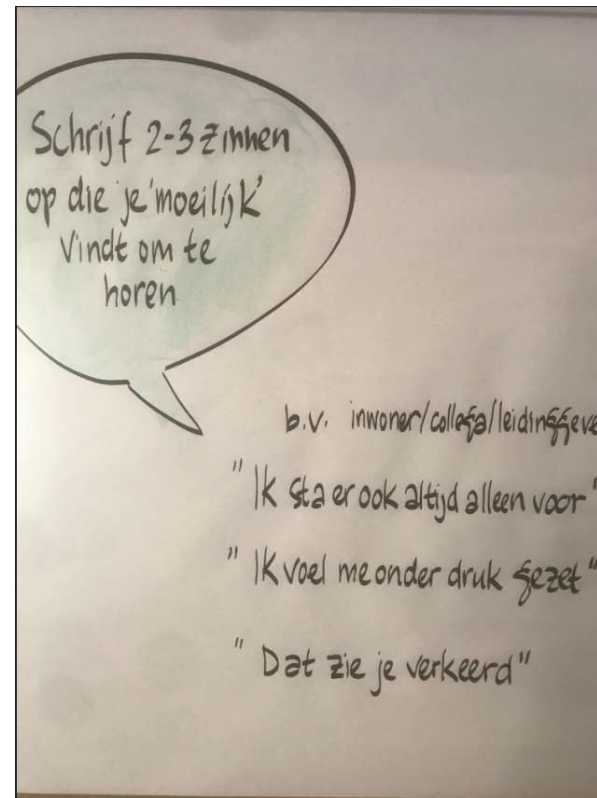 Schrijf 2-3 zinnen
op die je 'moeilijk'
vindt om te
horen
b.v. inwoner/collega/leidinggeve
"Ik sta er ook altijd alleen voor"
"Ik voel me onder druk gezet"
"Dat zie je verkeerd"